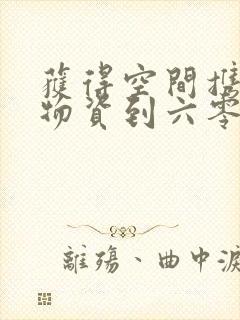 獲得空間攜
物資到六零
離殤、曲中淚